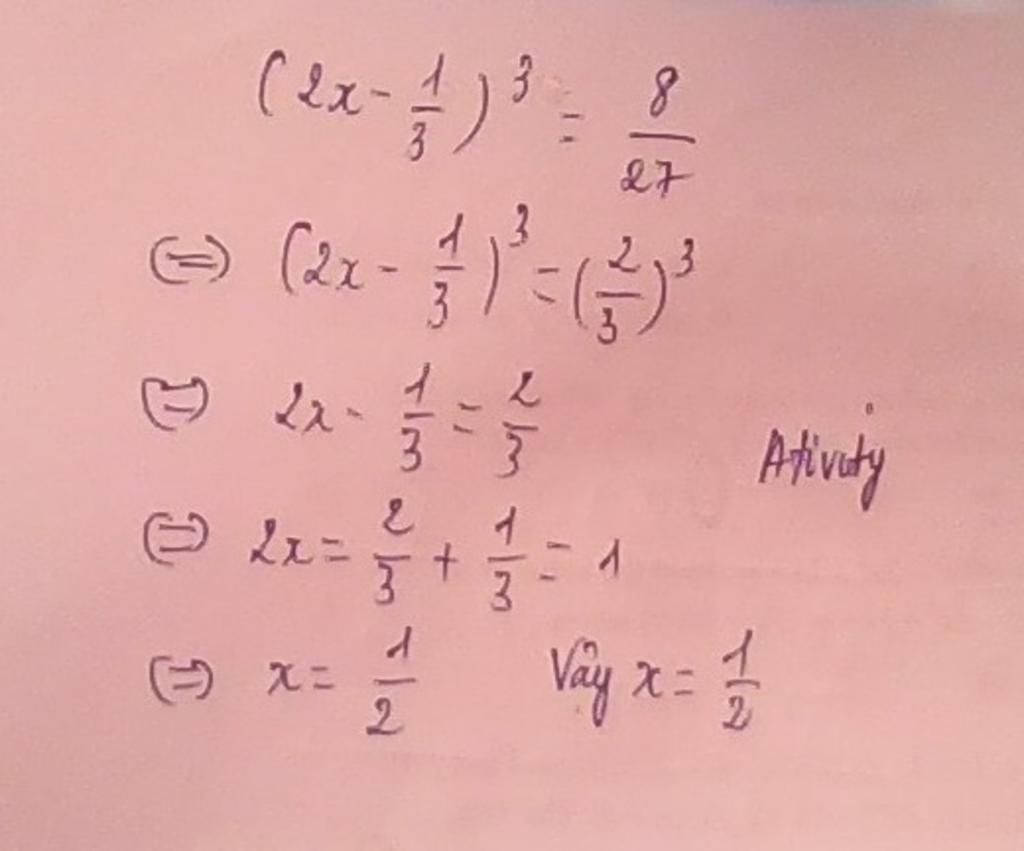 (2x - 1/3)³ = 8/27
(=) (2x - 1/3)³ = (2/3)³
(=) 2x - 1/3 = 2/3
Ativity
(=) 2x = 2/3 + 1/3 = 1
(=) x = 1/2 Vậy x = 1/2